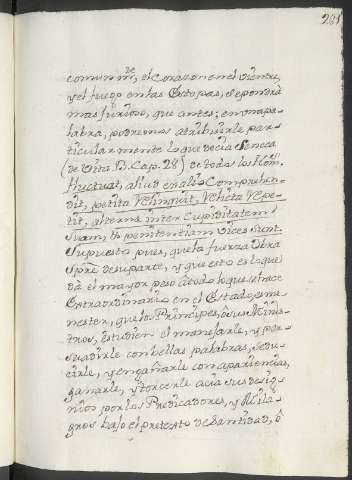 231
comunm.te, el corazon en el vientre,
y el fuego en las Estopas, se pondrà
mas furioso, que antes; en una pa-
labra, podremos atribuirle par-
ticularmente lo que decia Seneca
(de Vita B. Cap. 28) de todos los Hom.s
fluctuat, aliud ex alio Comprehen-
dit, petita Relinquit, Relicta Repe-
tit, alternæ inter Cupiditatem
Suam, & penitentiam vices sunt.
Supuesto pues, que la fuerza obra
Spre de su parte, y que esto es lo que
dà el mayor peso à todo lo que se hace
Extraordinario en el Estado, es me-
nester, que los Principes, ò sus Minis-
tros, estudien el manejarle, y per-
suadirle con bellas palabras, sedu-
cirle, y engañarle con apariencias,
ganarle, y torcerle acia sus desig-
nios por los Predicadores, y Mila-
gros bajo el pretexto de Santidad, ò